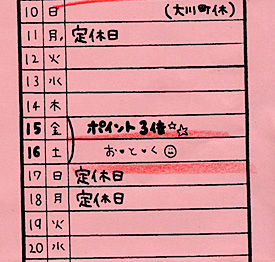 10 日 (大川町休)
11 月, 定休日
12 火
13 水
14 木
15 金 ポイント3倍☆☆
16 土 お・と・く☺
17 日 定休日
18 月 定休日
19 火
20 水